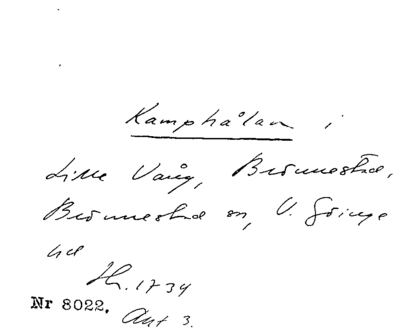 Kamphålan i
Lille Vång, Brönnestad,
Brönnestad sn, V. Göinge
hd
Jh. 1734
Nr 8022. Ant 3.